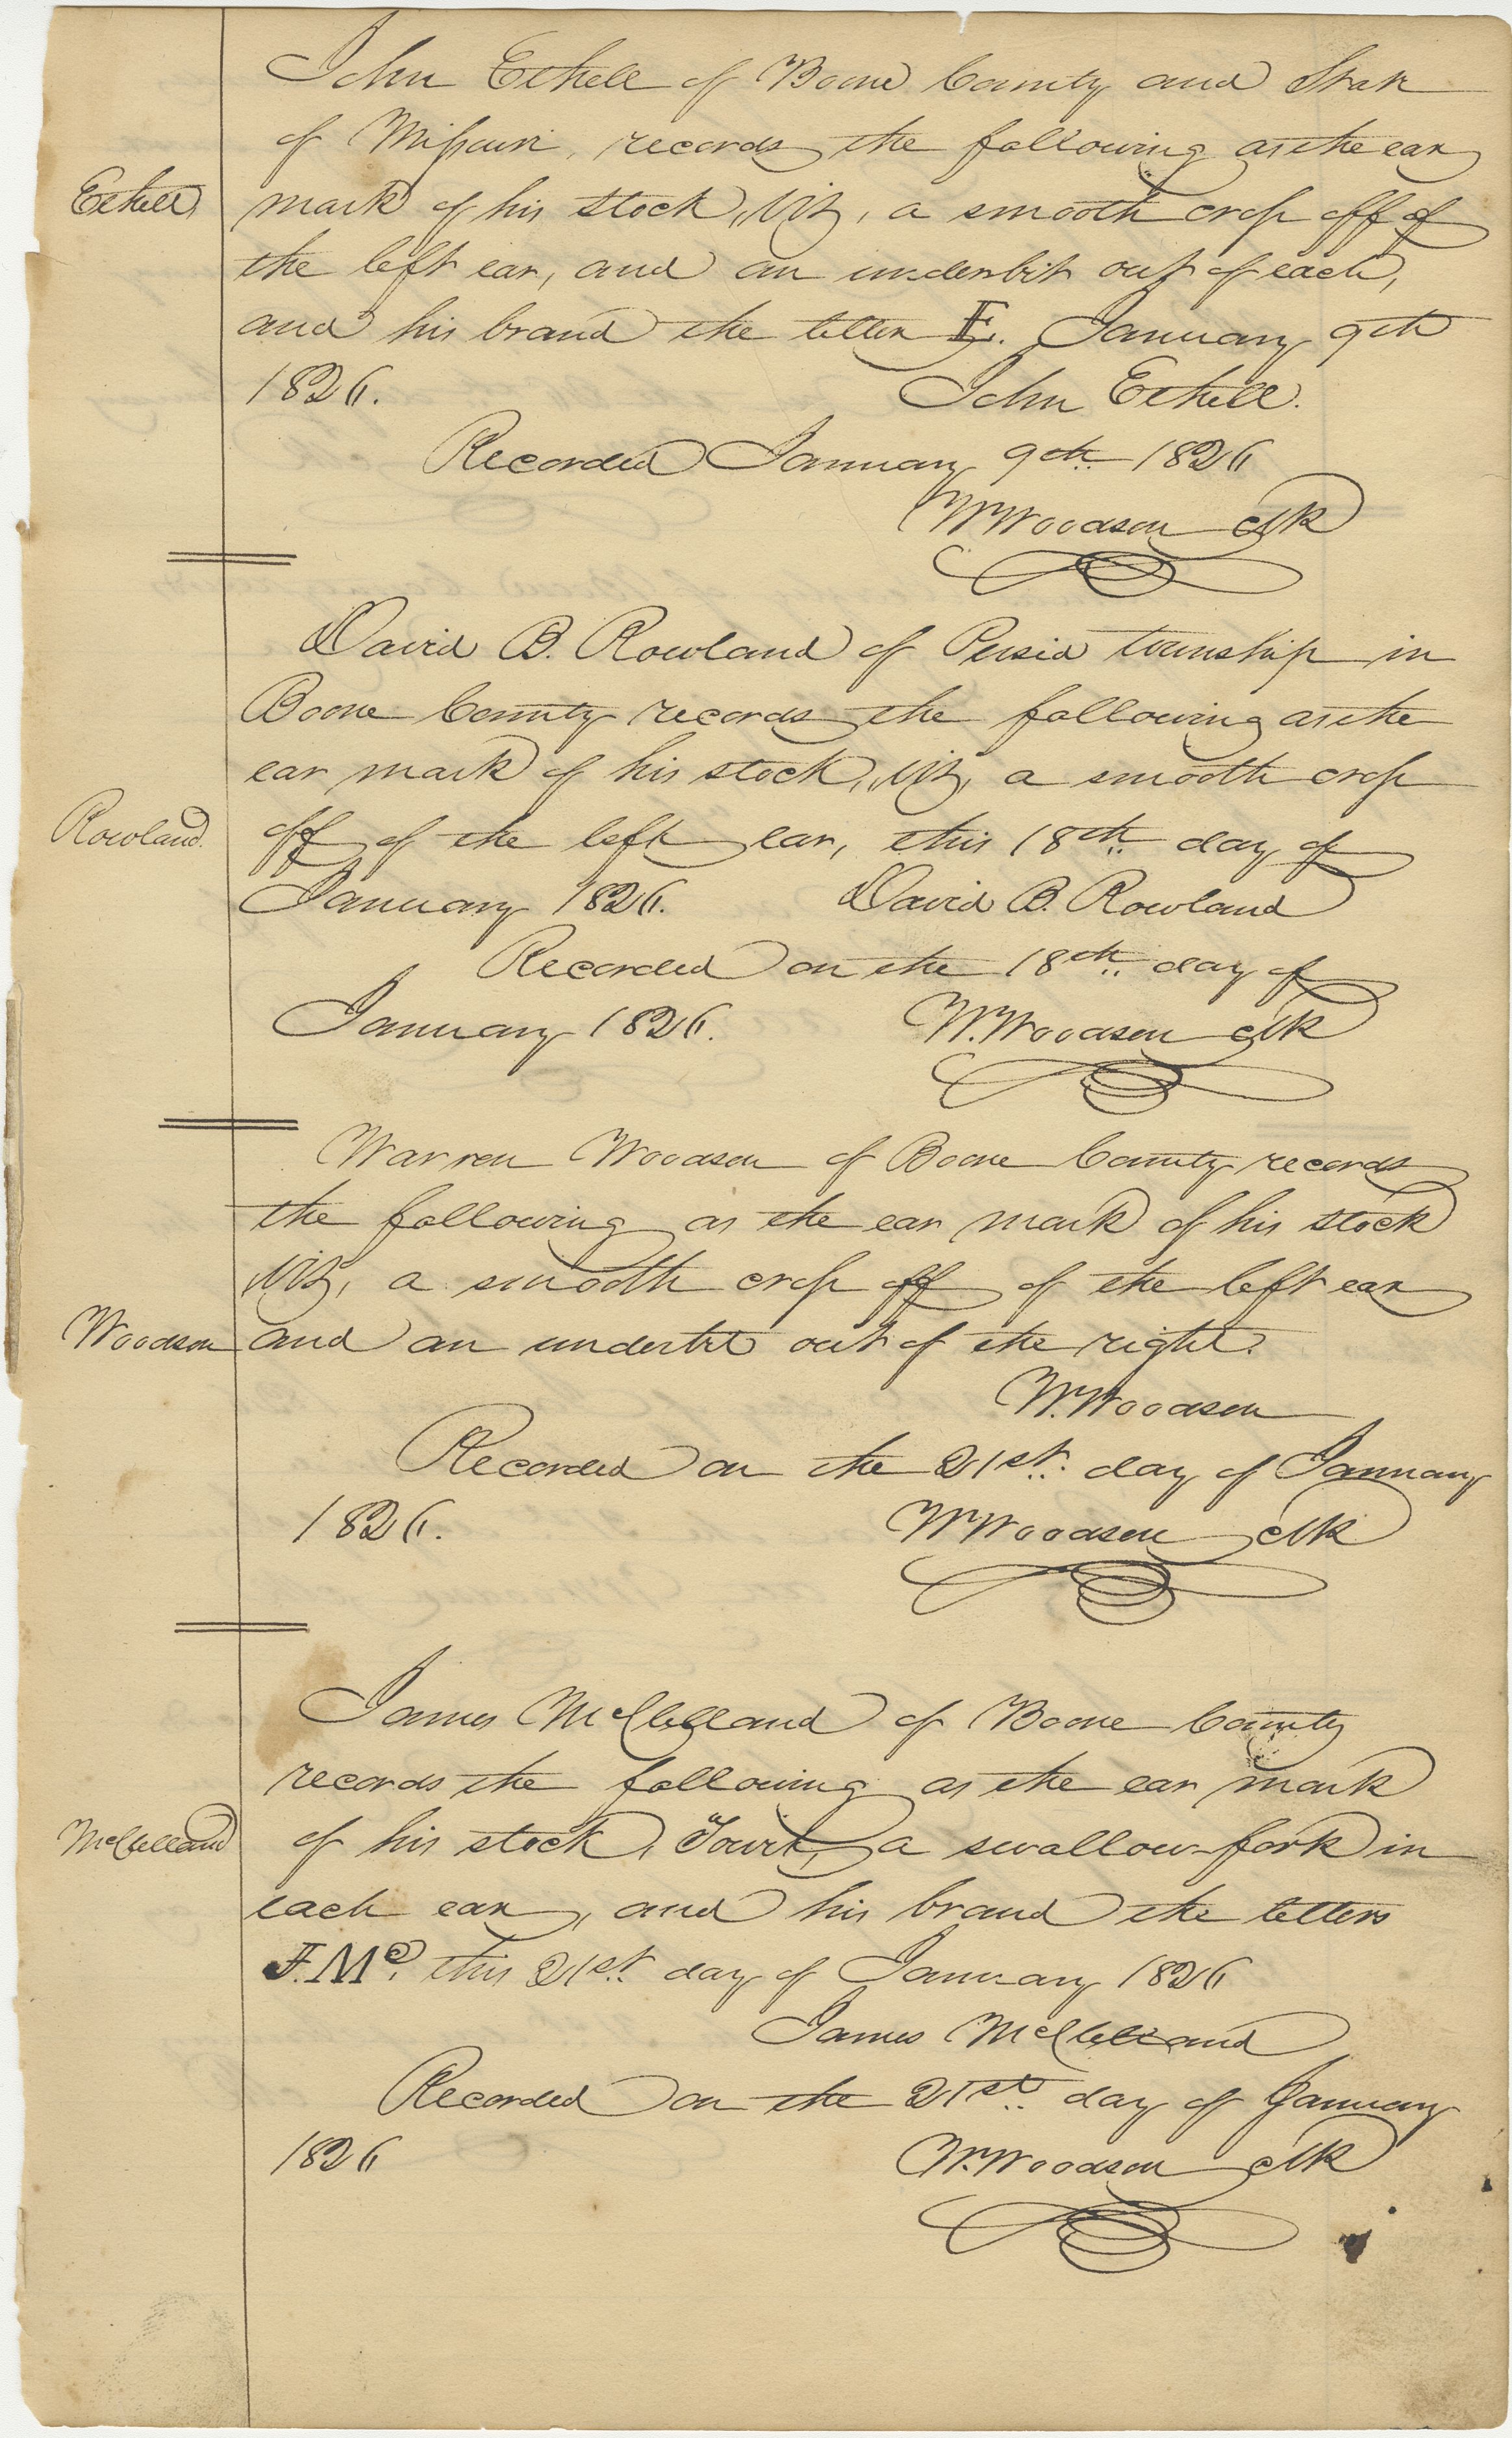 John Ethell of Boone County and State
of Missouri, records the following as the ear
Ethell
mark of his stock, viz, a smooth crop off of
the left ear, and an underbit out of each,
and his brand the letter E. January 9th
1826.
John Ethell.
Recorded January 9th 1826
W Woodson clk
David B. Rowland of Persia township in
Boone County records the following as the
ear mark of his stock, viz, a smooth crop
Rowland.
off of the left ear, this 18th day of
January 1826.
David B. Rowland
Recorded on the 18th day of
January 1826.
W. Woodson clk
Warren Woodson of Boone County records
the following as the ear mark of his stock
viz, a smooth crop off of the left ear
Woodson
and an underbit out of the right.
W. Woodson
Recorded on the 21st day of January
1826.
W Woodson clk
James McClelland of Boone County
records the following as the ear mark
McClelland
of his stock, Towit, a swallow-fork in
each ear, and his brand the letters
J.Mc. this 21st day of January 1826
James McClelland
Recorded on the 21st day of January
1826
W. Woodson clk